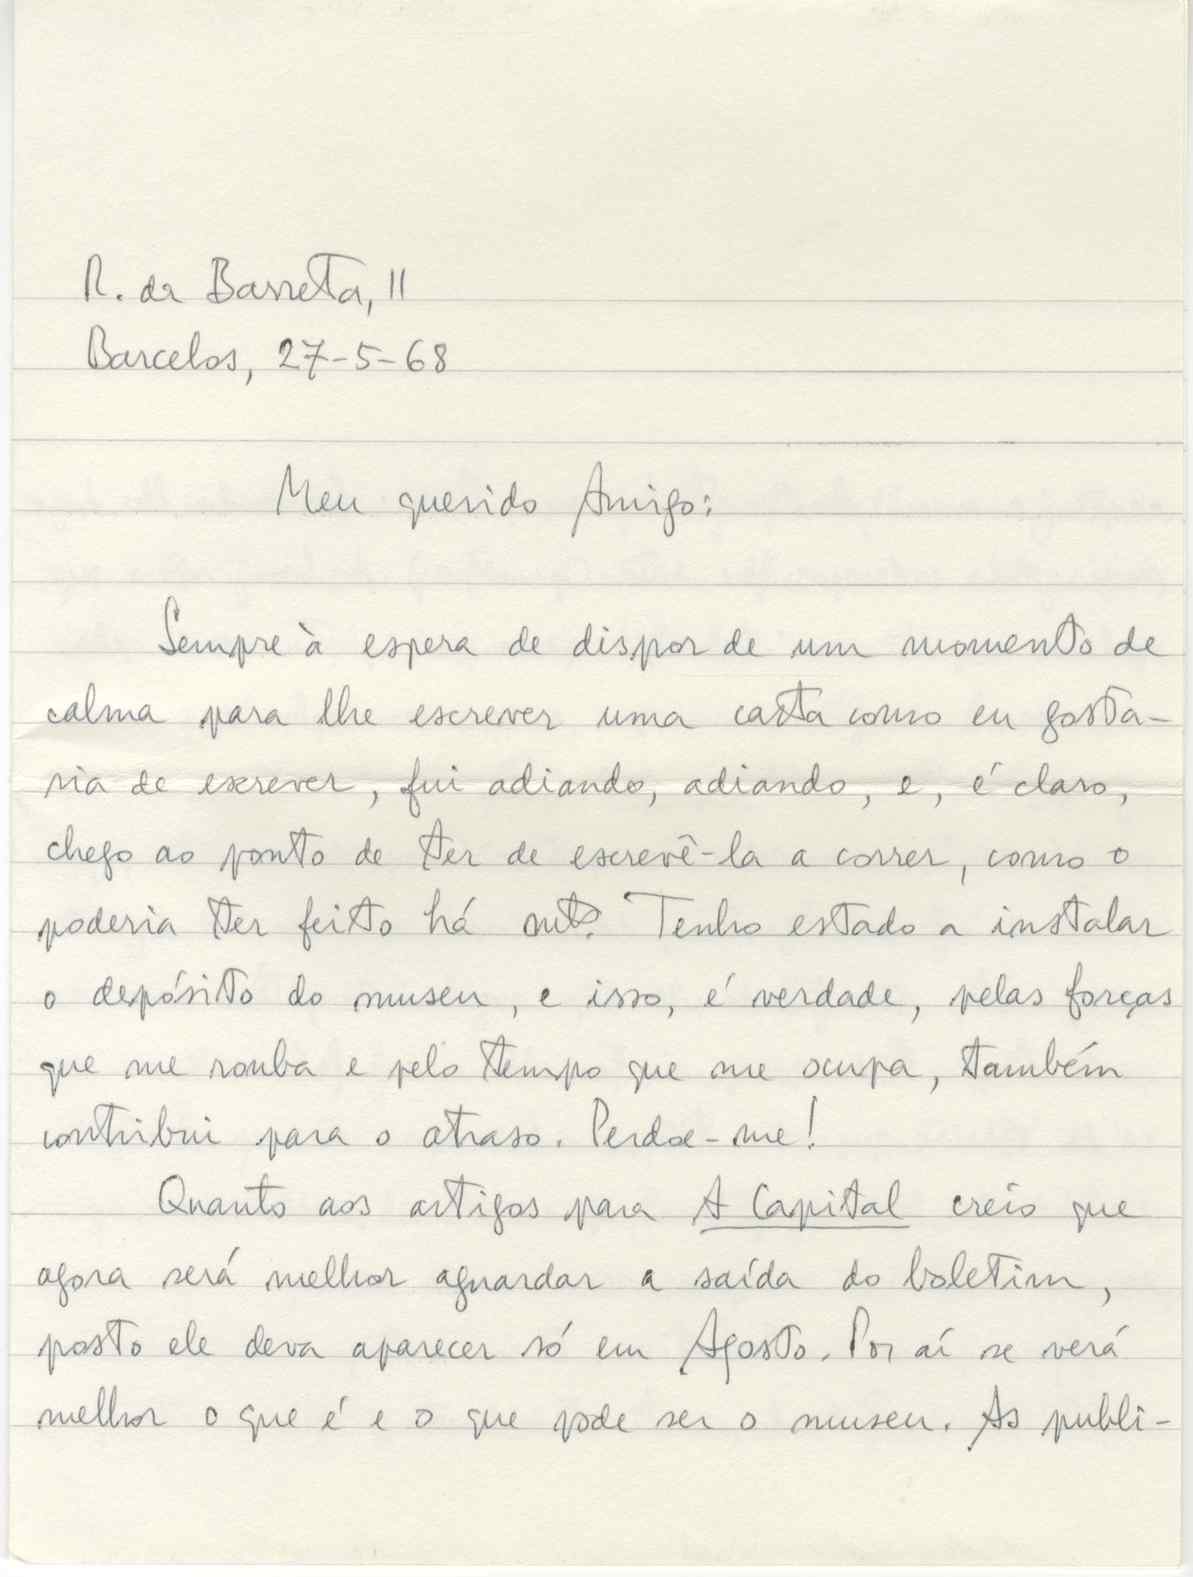 R. da Barreta, 11
Barcelos, 27-5-68
Meu querido Amigo:
Sempre à espera de dispor de um momento de
calma para lhe escrever uma carta como eu gosta-
ria de escrever, fui adiando, adiando, e, é claro,
chego ao ponto de ter de escrevê-la a correr, como o
poderia ter feito há mto. Tenho estado a instalar
o depósito do museu, e isso, é verdade, pelas forças
que me rouba e pelo tempo que me ocupa, também
contribui para o atraso. Perdoe-me!
Quanto aos artigos para A Capital creio que
agora será melhor aguardar a saída do boletim,
posto ele deva aparecer só em Agosto. Por aí se verá
melhor o que é e o que pode ser o museu. As publi-